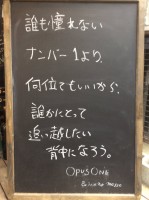 誰も憧れない
ナンバー1より、
何位でもいいから、
誰かにとって
追い越したい
背中になろう。
OPUS ONE